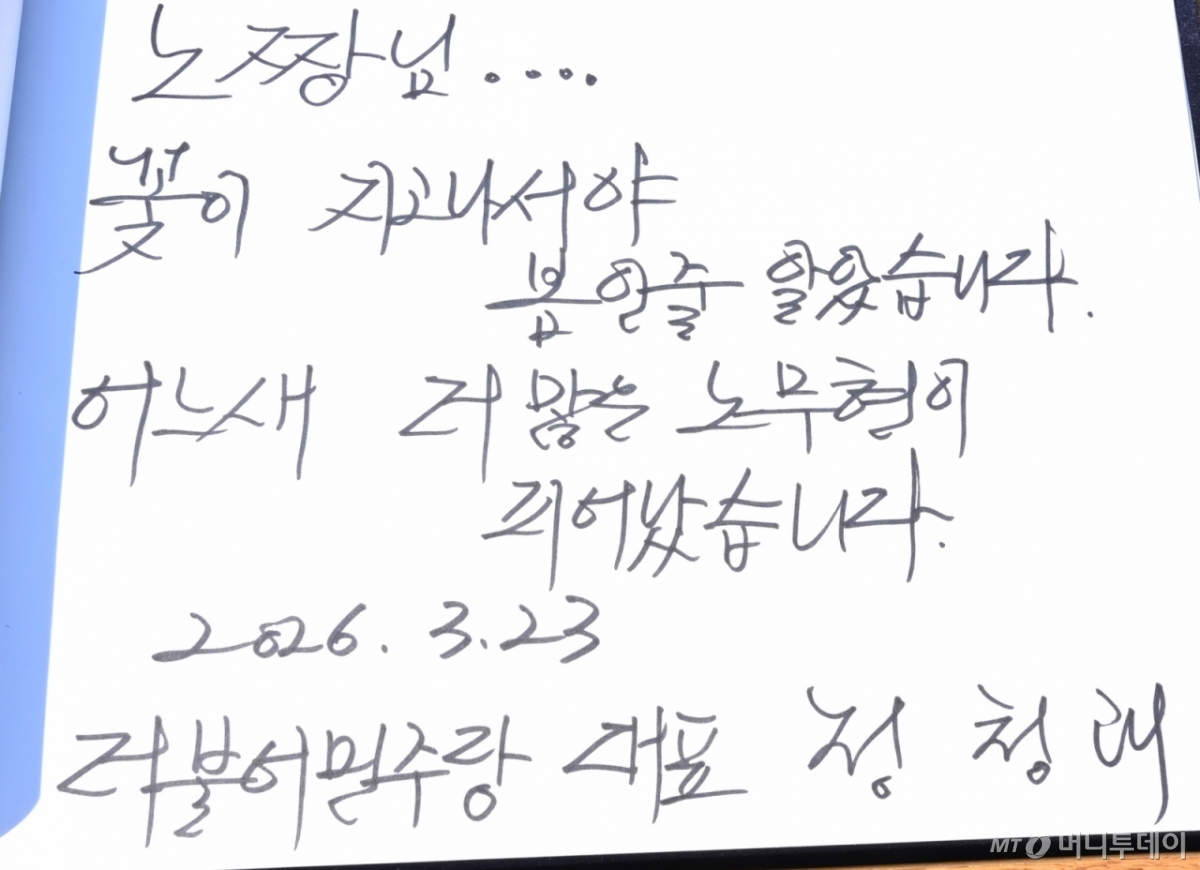 노짱님....
꽃이 지고나서야
봄인줄 알았습니다.
어느새 더 많은 노무현이
피어났습니다.
2026. 3.23
더불어민주당 대표 정 청 래
MTO 머니투데이